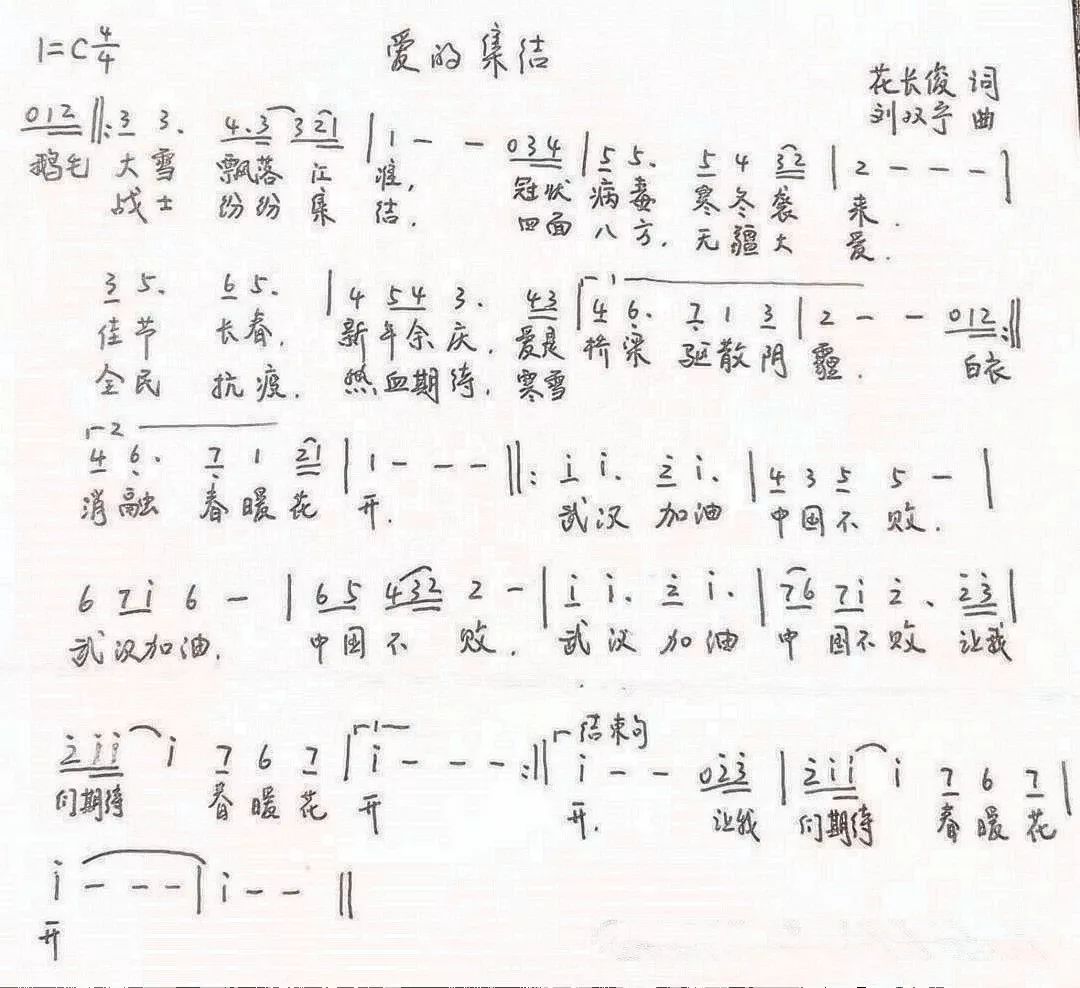 1=C 4/4
爱的集结
花长俊 词
刘双宁 曲
012 ‖: 3 3. 4.3 321 | 1 - - 034 | 5 5. 5 4 32 | 2 - - - |
鹅毛 大雪 飘落 江 淮, 冠状 病毒 寒冬袭 来.
战士 纷纷 集 结. 四面 八方, 无疆大 爱.
3 5. 6 5. | 4 54 3. 43 | 4 6. 7 1 3 | 2 - - 012 :‖
佳节 长春, 新年余庆, 爱是 桥梁 驱散阴 霾. 白衣
全民 抗疫, 热血期待, 寒雪
2
4 6. 7 1 21 | 1 - - - ‖: i i. 2 i. | 4 3 5 5 - |
消融 春暖花 开. 武汉 加油 中国不 败.
6 7i 6 - | 65 432 2 - | i i. 2 i. | 76 7i 2. 23 |
武汉加油. 中国不 败. 武汉 加油 中 国不败 让我
1 结束句
2ii i 7 6 7 | i - - - :‖ i - - 023 | 2ii i 7 6 7 |
们期待 春暖花 开 开. 让我 们期待 春暖花
i - - - | i - - ‖
开